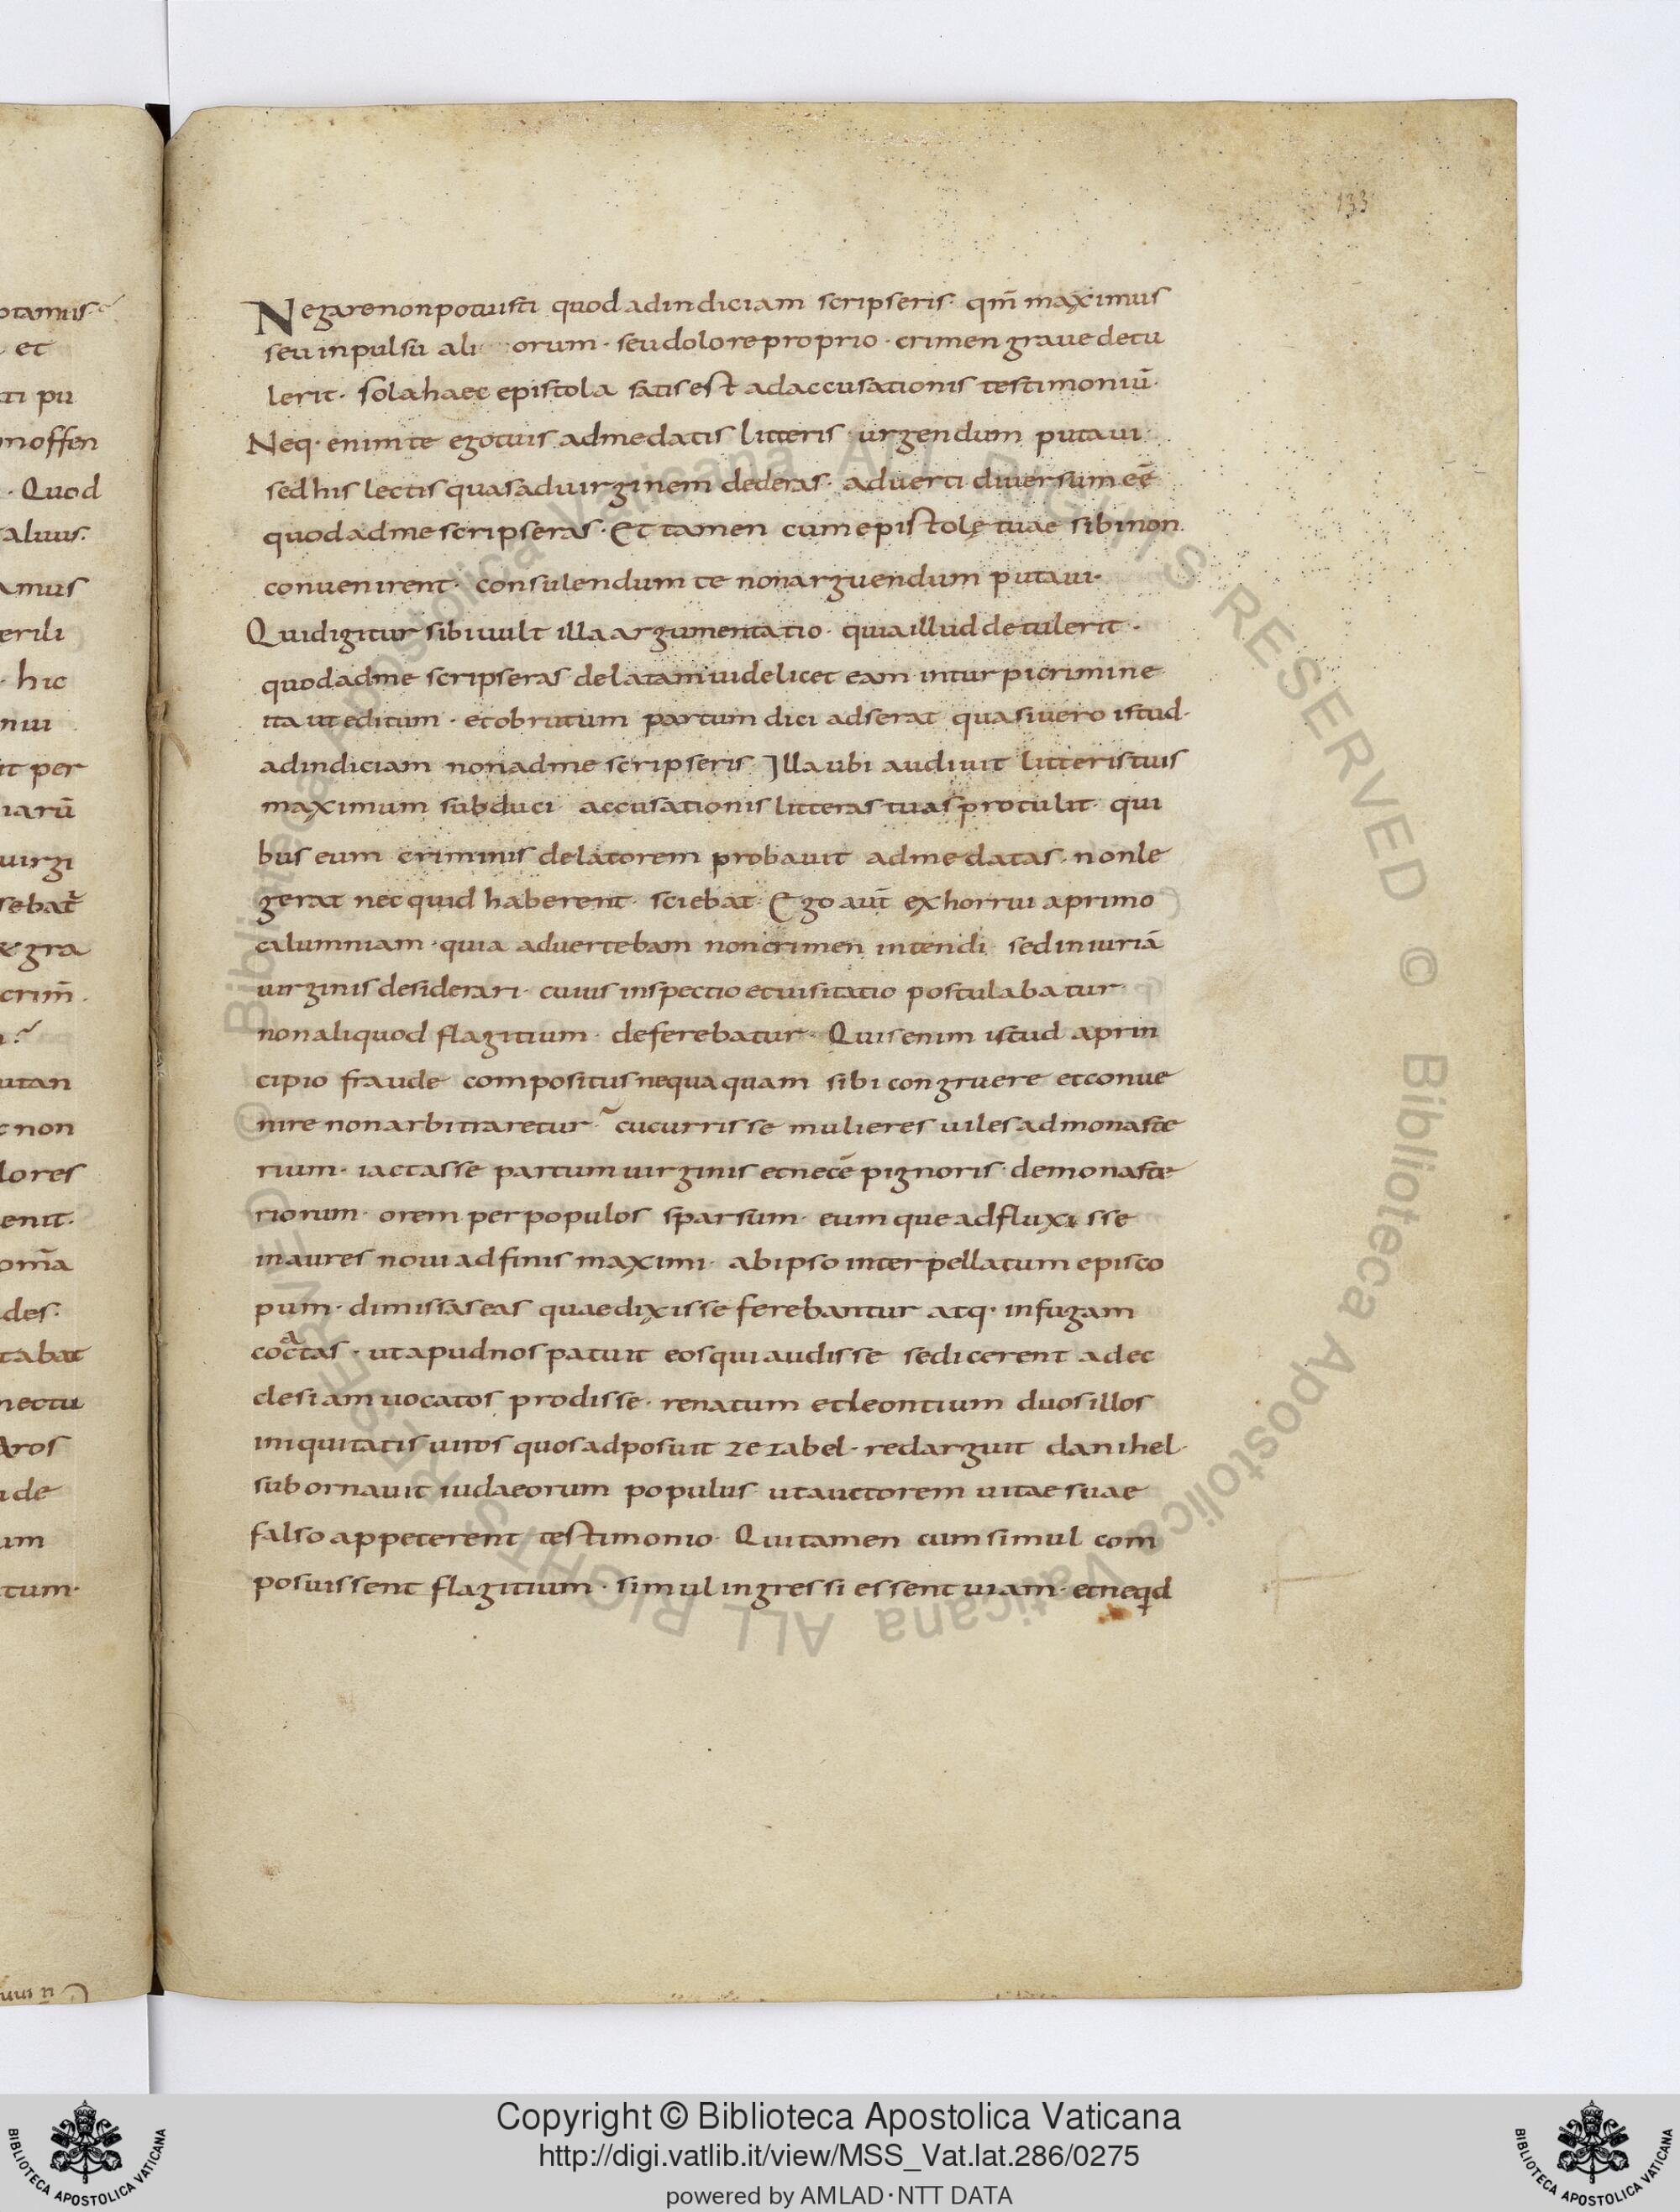 133
Negare non potuisti quod ad indiciam scripseris· qm̄ maximus
seu inpulsu ali orum· seu dolore proprio· crimen graue detu
lerit· sola haec epistola satis est ad accusationis testimoniū·
Neq· enim te ego tuis ad me datis litteris· urgendum putaui·
sed his lectis quas ad uirginem dederas· aduerti diuersum eē
quod ad me scripseras· Et tamen cum epistolę tuae sibi non
conuenirent· consulendum te non arguendum putaui·
Quid igitur sibi uult illa argumentatio· quia illud detulerit·
quod ad me scripseras delatam uidelicet eam in turpi crimine
ita ut editum· et obrutum partum dici adserat quasi uero istud·
ad indiciam non ad me scripseris Illa ubi audiuit litteris tuis
maximum subduci accusationis litteras tuas protulit· qui
bus eum criminis delatorem probauit ad me datas· non le
gerat nec quid haberent· sciebat· Ego aut̄ exhorrui a primo
calumniam· quia aduertebam non crimen intendi· sed iniuriā
uirginis desiderari· cuius inspectio et uisitatio postulabatur
non aliquod flagitium· deferebatur· Quis enim istud a prin
cipio fraude compositus nequaquam sibi congruere et conue
nire non arbitraretur·~ cucurrisse mulieres uiles ad monaste
rium· iactasse partum uirginis et necē pignoris· de monaste
riorum· orem per populos sparsum· eumque adfluxisse
in aures noui adfinis maximi· ab ipso interpellatum episco
pum· dimissas eas quae dixisse ferebantur atq· in fugam
coactas· ut apud nos patuit eos qui audisse se dicerent ad ec
clesiam uocatos prodisse· renatum et leontium duos illos
iniquitatis uiros quos adposuit zezabel· redarguit danihel·
subornauit iudaeorum populus ut auctorem uitae suae
falso appeterent testimonio· Qui tamen cum simul com
posuissent flagitium· simul ingressi essent uiam· et neqd
Copyright © Biblioteca Apostolica Vaticana
http://digi.vatlib.it/view/MSS_Vat.lat.286/0275
powered by AMLAD·NTT DATA